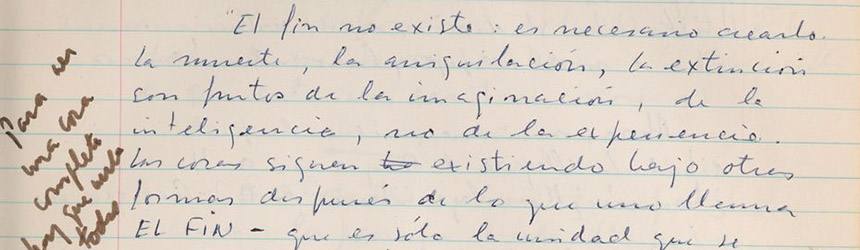 "El fin no existe: es necesario crearlo.
La muerte, la aniquilación, la extinción
son frutos de la imaginación, de la
inteligencia, no de la experiencia.
Las cosas siguen existiendo bajo otras
formas después de lo que uno llama
EL FIN - que es sólo la unidad que se
Para ver
una cosa
completa
hay que verla
todo